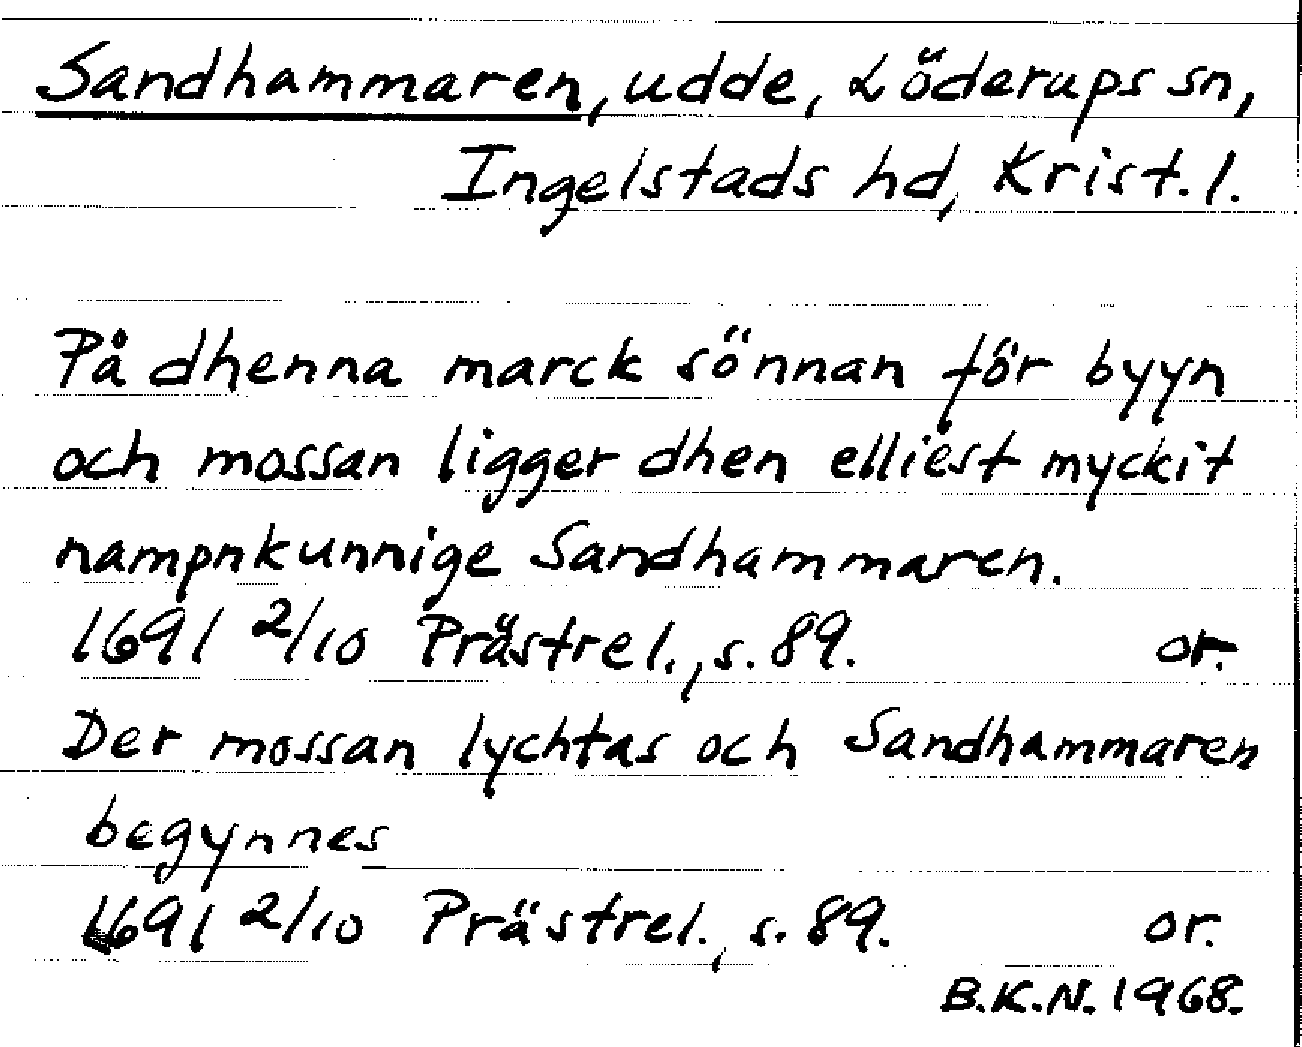 Sandhammaren, udde, Löderups sn,
Ingelstads hd, Krist. l.
På dhenna marck sönnan för byyn
och mossan ligger dhen elliest myckit
nampnkunnige Sandhammaren.
1691 2/10 Prästrel., s. 89. or.
Der mossan lychtas och Sandhammaren
begynnes
1691 2/10 Prästrel., s. 89. or.
B.K.N. 1968.